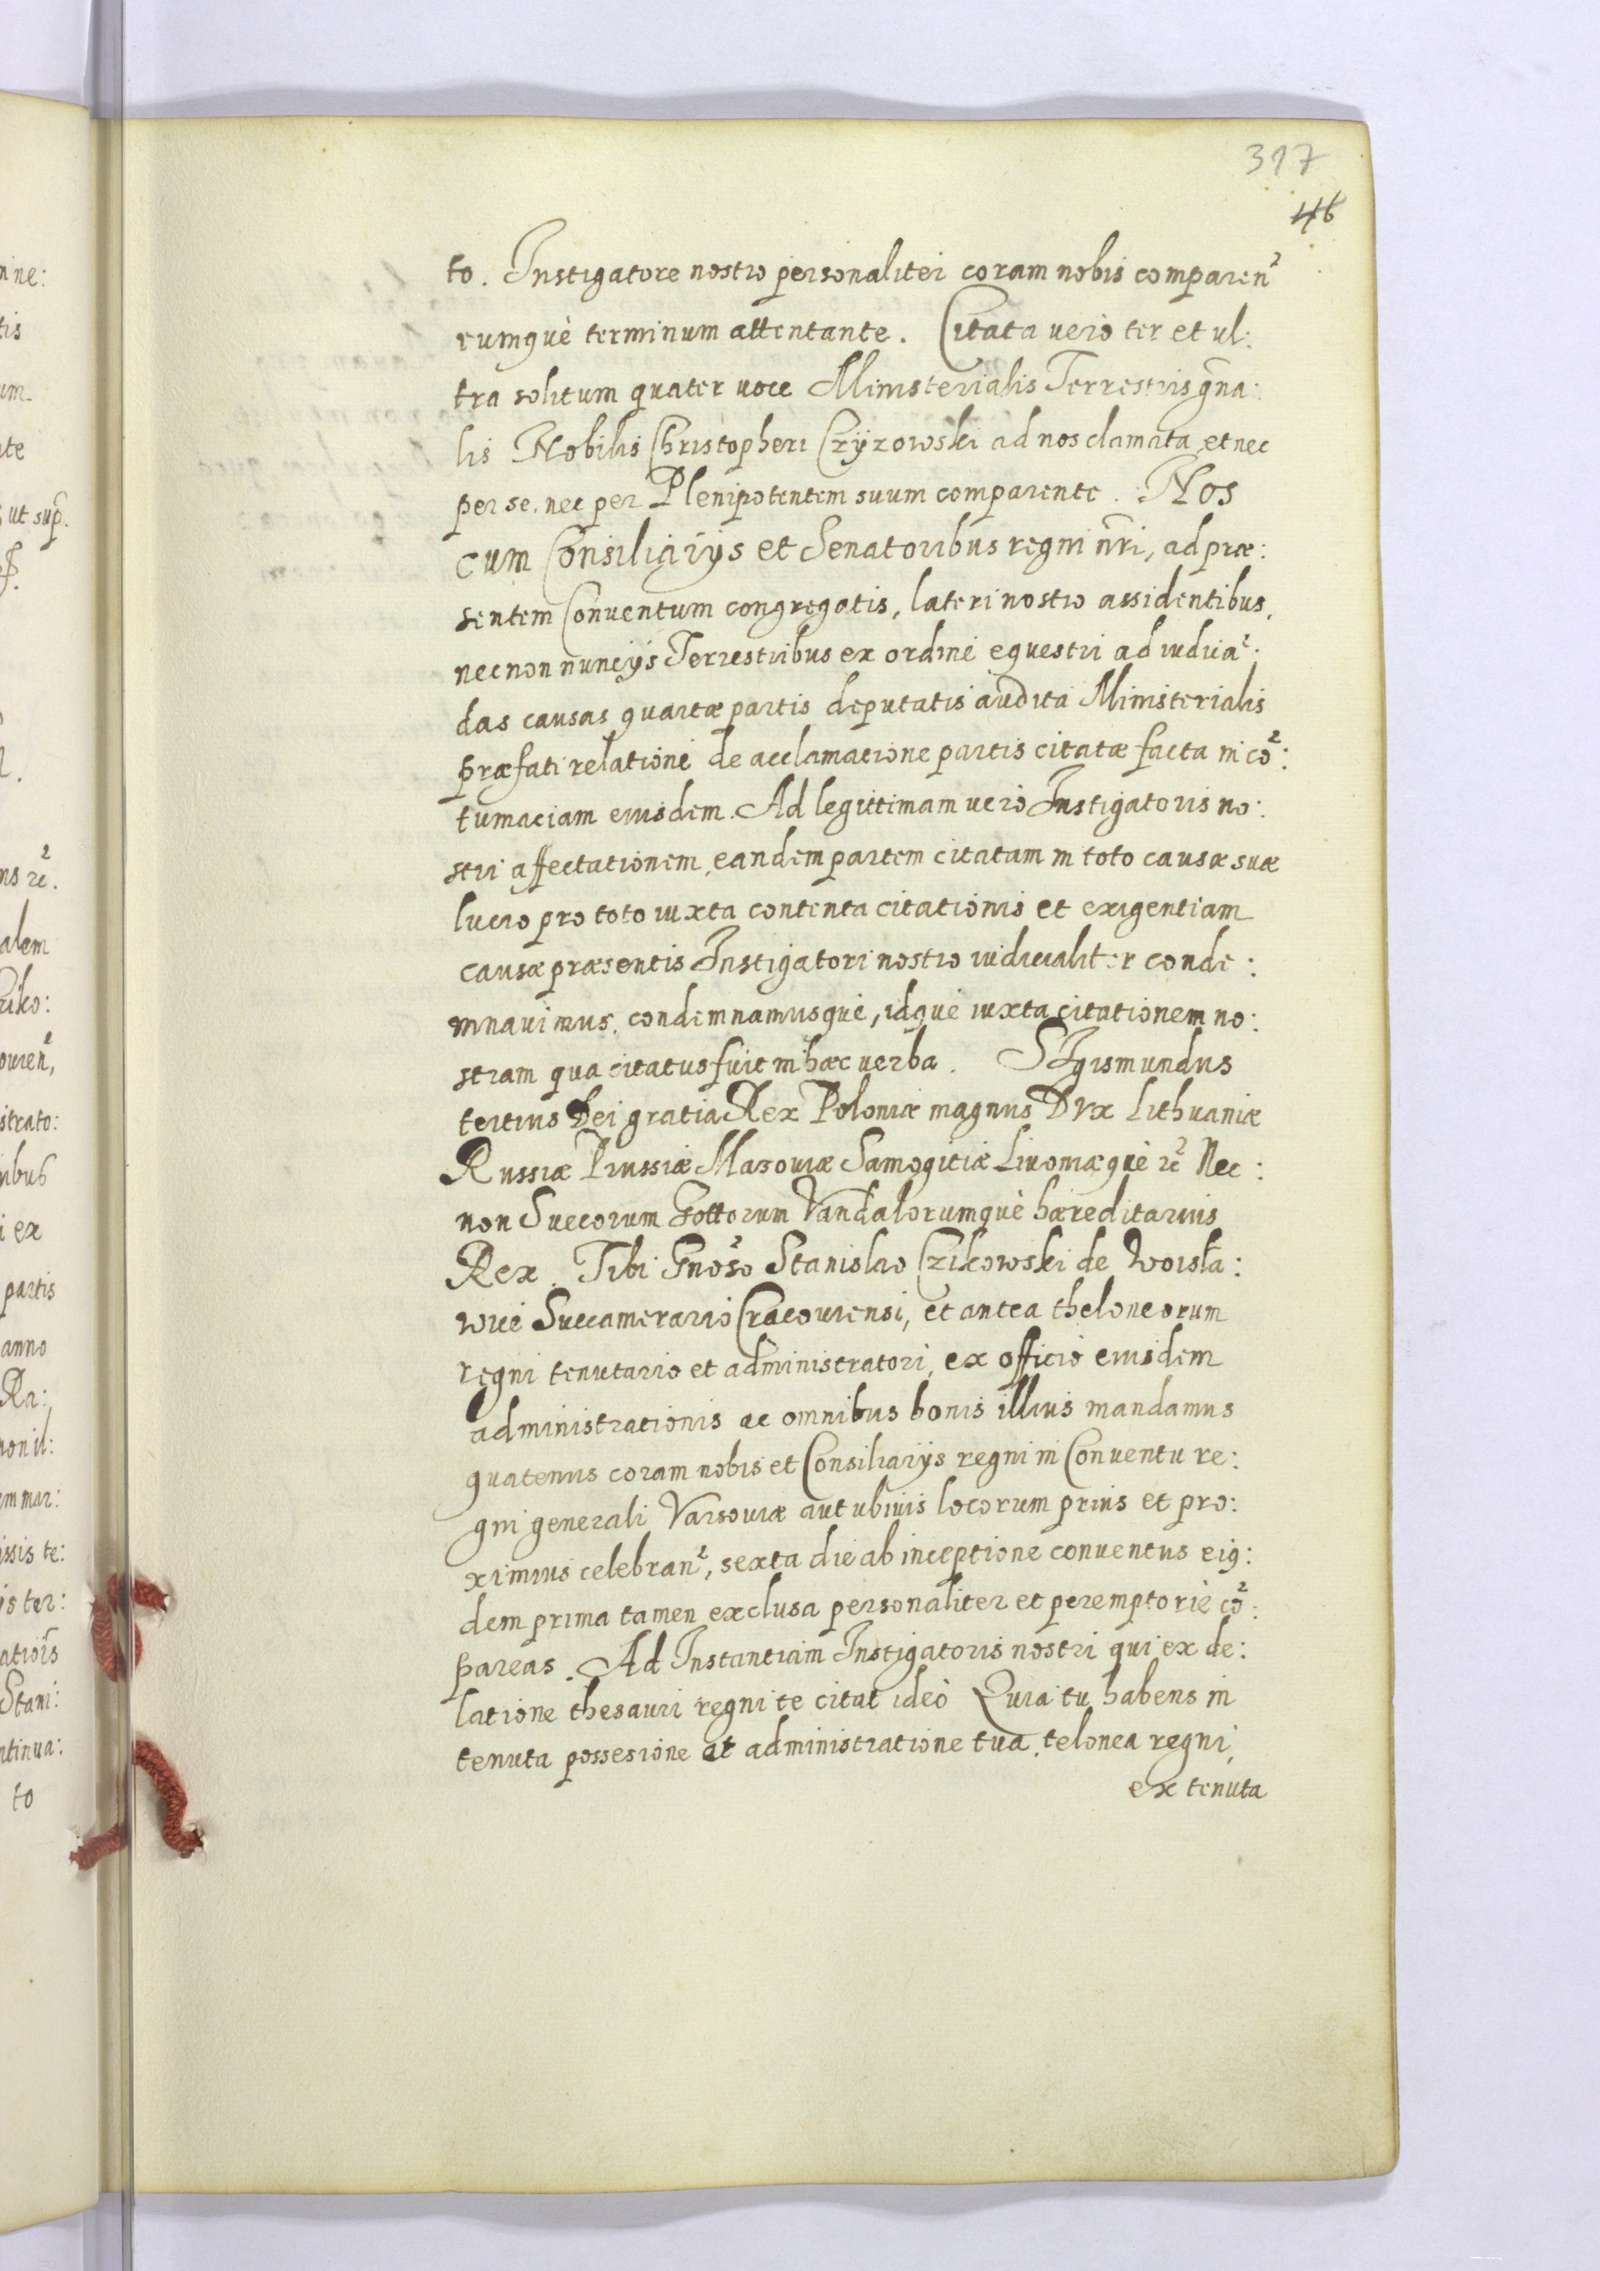 317
46
to. Instigatore nostro personaliter coram nobis comparen²
eumquè terminum attentante. Citata verò ter et ul:
tra solitum quater voce Ministerialis Terrestris gn̄a:
lis Nobilis Christopheri Czÿzowski ad nos clamata, et nec
per se, nec per Plenipotentem suum comparente. Nos
cum Consiliarijs et Senatoribus regni nr̄i, ad præ:
sentem Conventum congregatis, lateri nostro assidentibus,
necnon nuncijs Terrestribus ex ordine equestri ad iudica²:
das causas quartæ partis deputatis audita Ministerialis
præfati relatione de acclamatione partis citatæ facta in co²:
tumaciam eiusdem. Ad legittimam verò Instigatoris no:
stri affectationem, eandem partem citatam in toto causæ suæ
lucro pro toto iuxta contenta citationis et exigentiam
causæ præsentis Instigatori nostro iudicialiter conde:
mnavimus, condemnamusquè, idquè iuxta citationem no:
stram qua citatus fuit in hæc verba. SIgismundus
tertius Dei gratia Rex Poloniæ magnus Dux Lithuaniæ
Russiæ Prussiæ Masoviæ Samogitiæ Livoniæquè ꝛc² Nec:
non Suecorum Gottorum Vandalorumquè hæreditarius
Rex. Tibi Gnoso² Stanislao Czikowski de Woisła:
wice Succamerario Cracoviensi, et antea theloneorum
regni tenutario et administratori, ex officio eiusdem
administrationis ac omnibus bonis illius mandamus
quatenus coram nobis et Consiliarijs regni in Conventu re:
gni generali Varsoviæ aut ubivis locorum prius et pro:
ximius celebran², sexta die ab inceptione conventus eiq:
dem prima tamen exclusa personaliter et peremptoriè co²:
pareas. Ad Instantiam Instigatoris nostri qui ex de:
latione thesauri regni te citat ideò Quia tu habens in
tenuta possesione et administratione tua, telonea regni,
ex tenuta